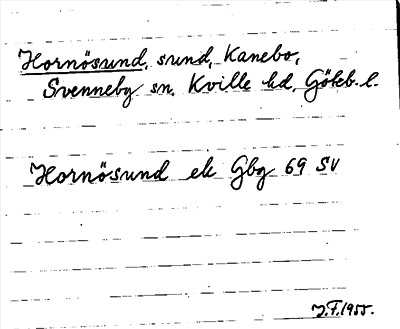 Hornösund, sund, Kanebo,
Svenneby sn. Kville hd, Göteb. l.
Hornösund ek Gbg 69 SV
J.F. 1955.